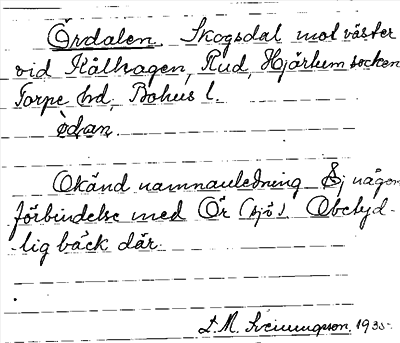 Ördalen. Skogsdal mot väster
vid Kålhagen, Rud, Hjärtum socken
Torpe hd, Bohus l.
ö̀dan.
Okänd namnavledning Ej någon
förbindelse med Ör (sjö). Obetyd-
lig bäck där.
L. M. Svenungsson. 1935.